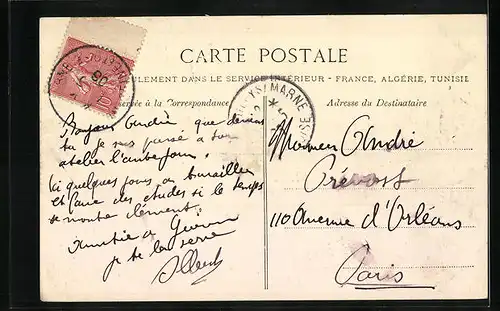 CARTE POSTALE
ULEMENT DANS LE SERVICE INTÉRIEUR - FRANCE, ALGÉRIE, TUNISIE
ervée à la Correspondance
Adresse du Destinataire
MARNE
10
Bonjour André que deviens
tu je suis passé a ton
atelier l'autre jour.
Ici quelques jours a travailler
et faire des etudes si le temps
se montre clément.
Amitié a
je te la serre
Monsieur André
Prévost
110 Avenue d'Orléans
Paris